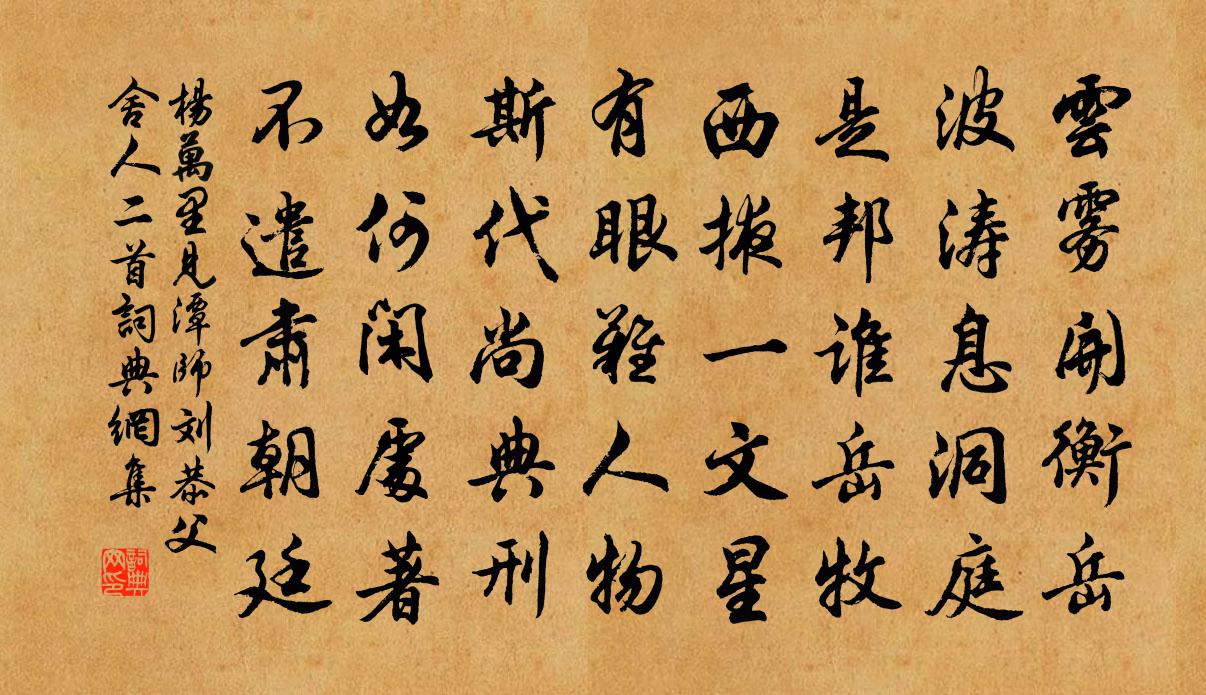 雲霧開衡岳
波濤息洞庭
是邦誰岳牧
西掖一文星
有眼難人物
斯代尚典刑
如何閑處著
不遣肅朝廷
楊萬里見潭師刘恭父
舍人二首詞典網集
詞典网印